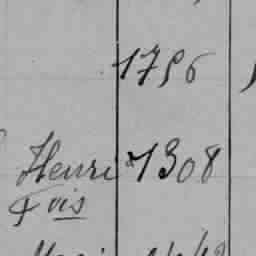 1756
Henri 1308
Fois